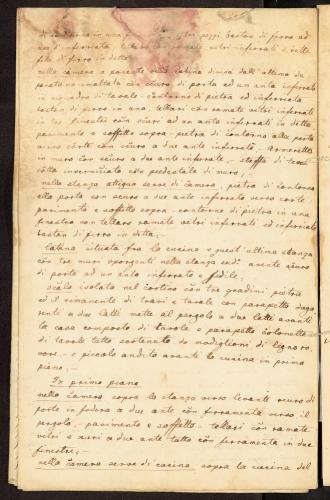 di contorno in una tre pezzi baston di ferro ad
uso d'inferriata, tellari ramate vetri inferrati e relle
file di ferro in detta
nella camera a ponente della latina divisa dall'ultima da
parete con scuro di porta ad un anta inferrato
in squadra di tavole contorno di pietra ed inferriata
bastoni di ferro in una, tellari con ramate vetri inferrati
in tre finestre con scuri ad un anta inferrati in detta
pavimento e soffitto sopra pietra di contorno alla porta
verso corte con scuro a due ante inferrato, armaretto
in muro con scuri a due ante inferrate
cotta inverniciata con piedestalo di muro,
nella stanza attigua serve di camera, pietra di contorno
alla porta con scuro a due ante inferrato verso corte
pavimento e soffitto sopra contorno di pietra in una
finestra con tellaro ramate vetri inferrati ed inferriata
bastoni di ferro in detta,
latina situata fra la cucina e quest'ultima stanza
con tre muri sporgenti nella stanza avente scuro
di porta ad un anta inferrato e
scala isolata nel cortivo con tre gradini pietra
ed il rimanente di travi e tavole con parapetto
a due latti mette al pergolo a due latti avanti
la casa composto di tavole e parapetto colonette
di tavole tutto sostenuto da modiglioni di legno ro-
vere, e piccolo andito avanti la cucina in primo
piano,
In primo piano
nella camera sopra la stanza verso levante scuro di
porta in fodera a due ante con ferramenta verso il
pergolo, pavimento e soffitto tellari con ramate
vetri e scuri a due ante tutto con ferramenta in due
finestre,
nella camera serve di cucina sopra la cucina del